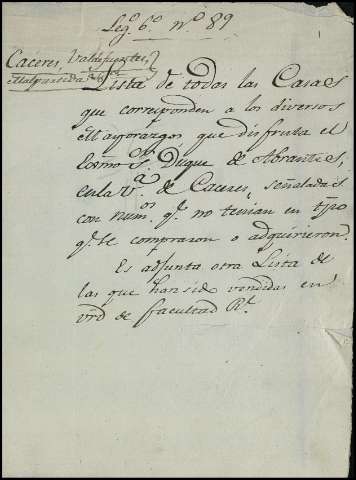 Leg.º 6.º n.º 89
Caceres, Valdefuentes,
Lista de todas las Casas
que corresponden a los diversos
Mayorazgos que disfruta el
Exmo. S.or Duque de Abrantes,
en la V.a de Caceres, señaladas
con num.os q.e no tenian en tpo
q.e se compraron o adquirieron.
Es adjunta otra Lista de
las que han sido vendidas en
vrd de facultad R.l